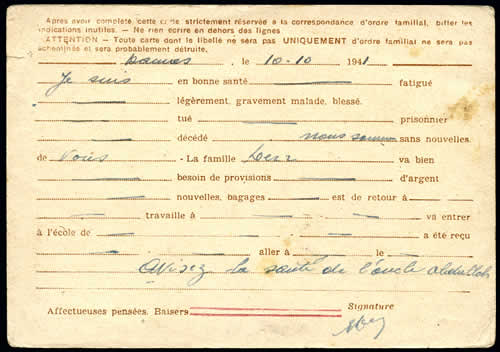 Après avoir complété cette carte strictement réservée à la correspondance d'ordre familial, biffer les
indications inutiles. — Ne rien écrire en dehors des lignes
ATTENTION - Toute carte dont le libellé ne sera pas UNIQUEMENT d'ordre familial ne sera pas
acheminée et sera probablement détruite.
Damas, le 10-10 1941
Je suis en bonne santé fatigué
légèrement, gravement malade, blessé.
tué prisonnier
décédé nous sommes sans nouvelles
de Vous - La famille va bien
besoin de provisions d'argent
nouvelles, bagages est de retour à
travaille à va entrer
à l'école de a été reçu
aller à le
Avisez la santé de l'oncle Abdullah
Affectueuses pensées. Baisers Signature